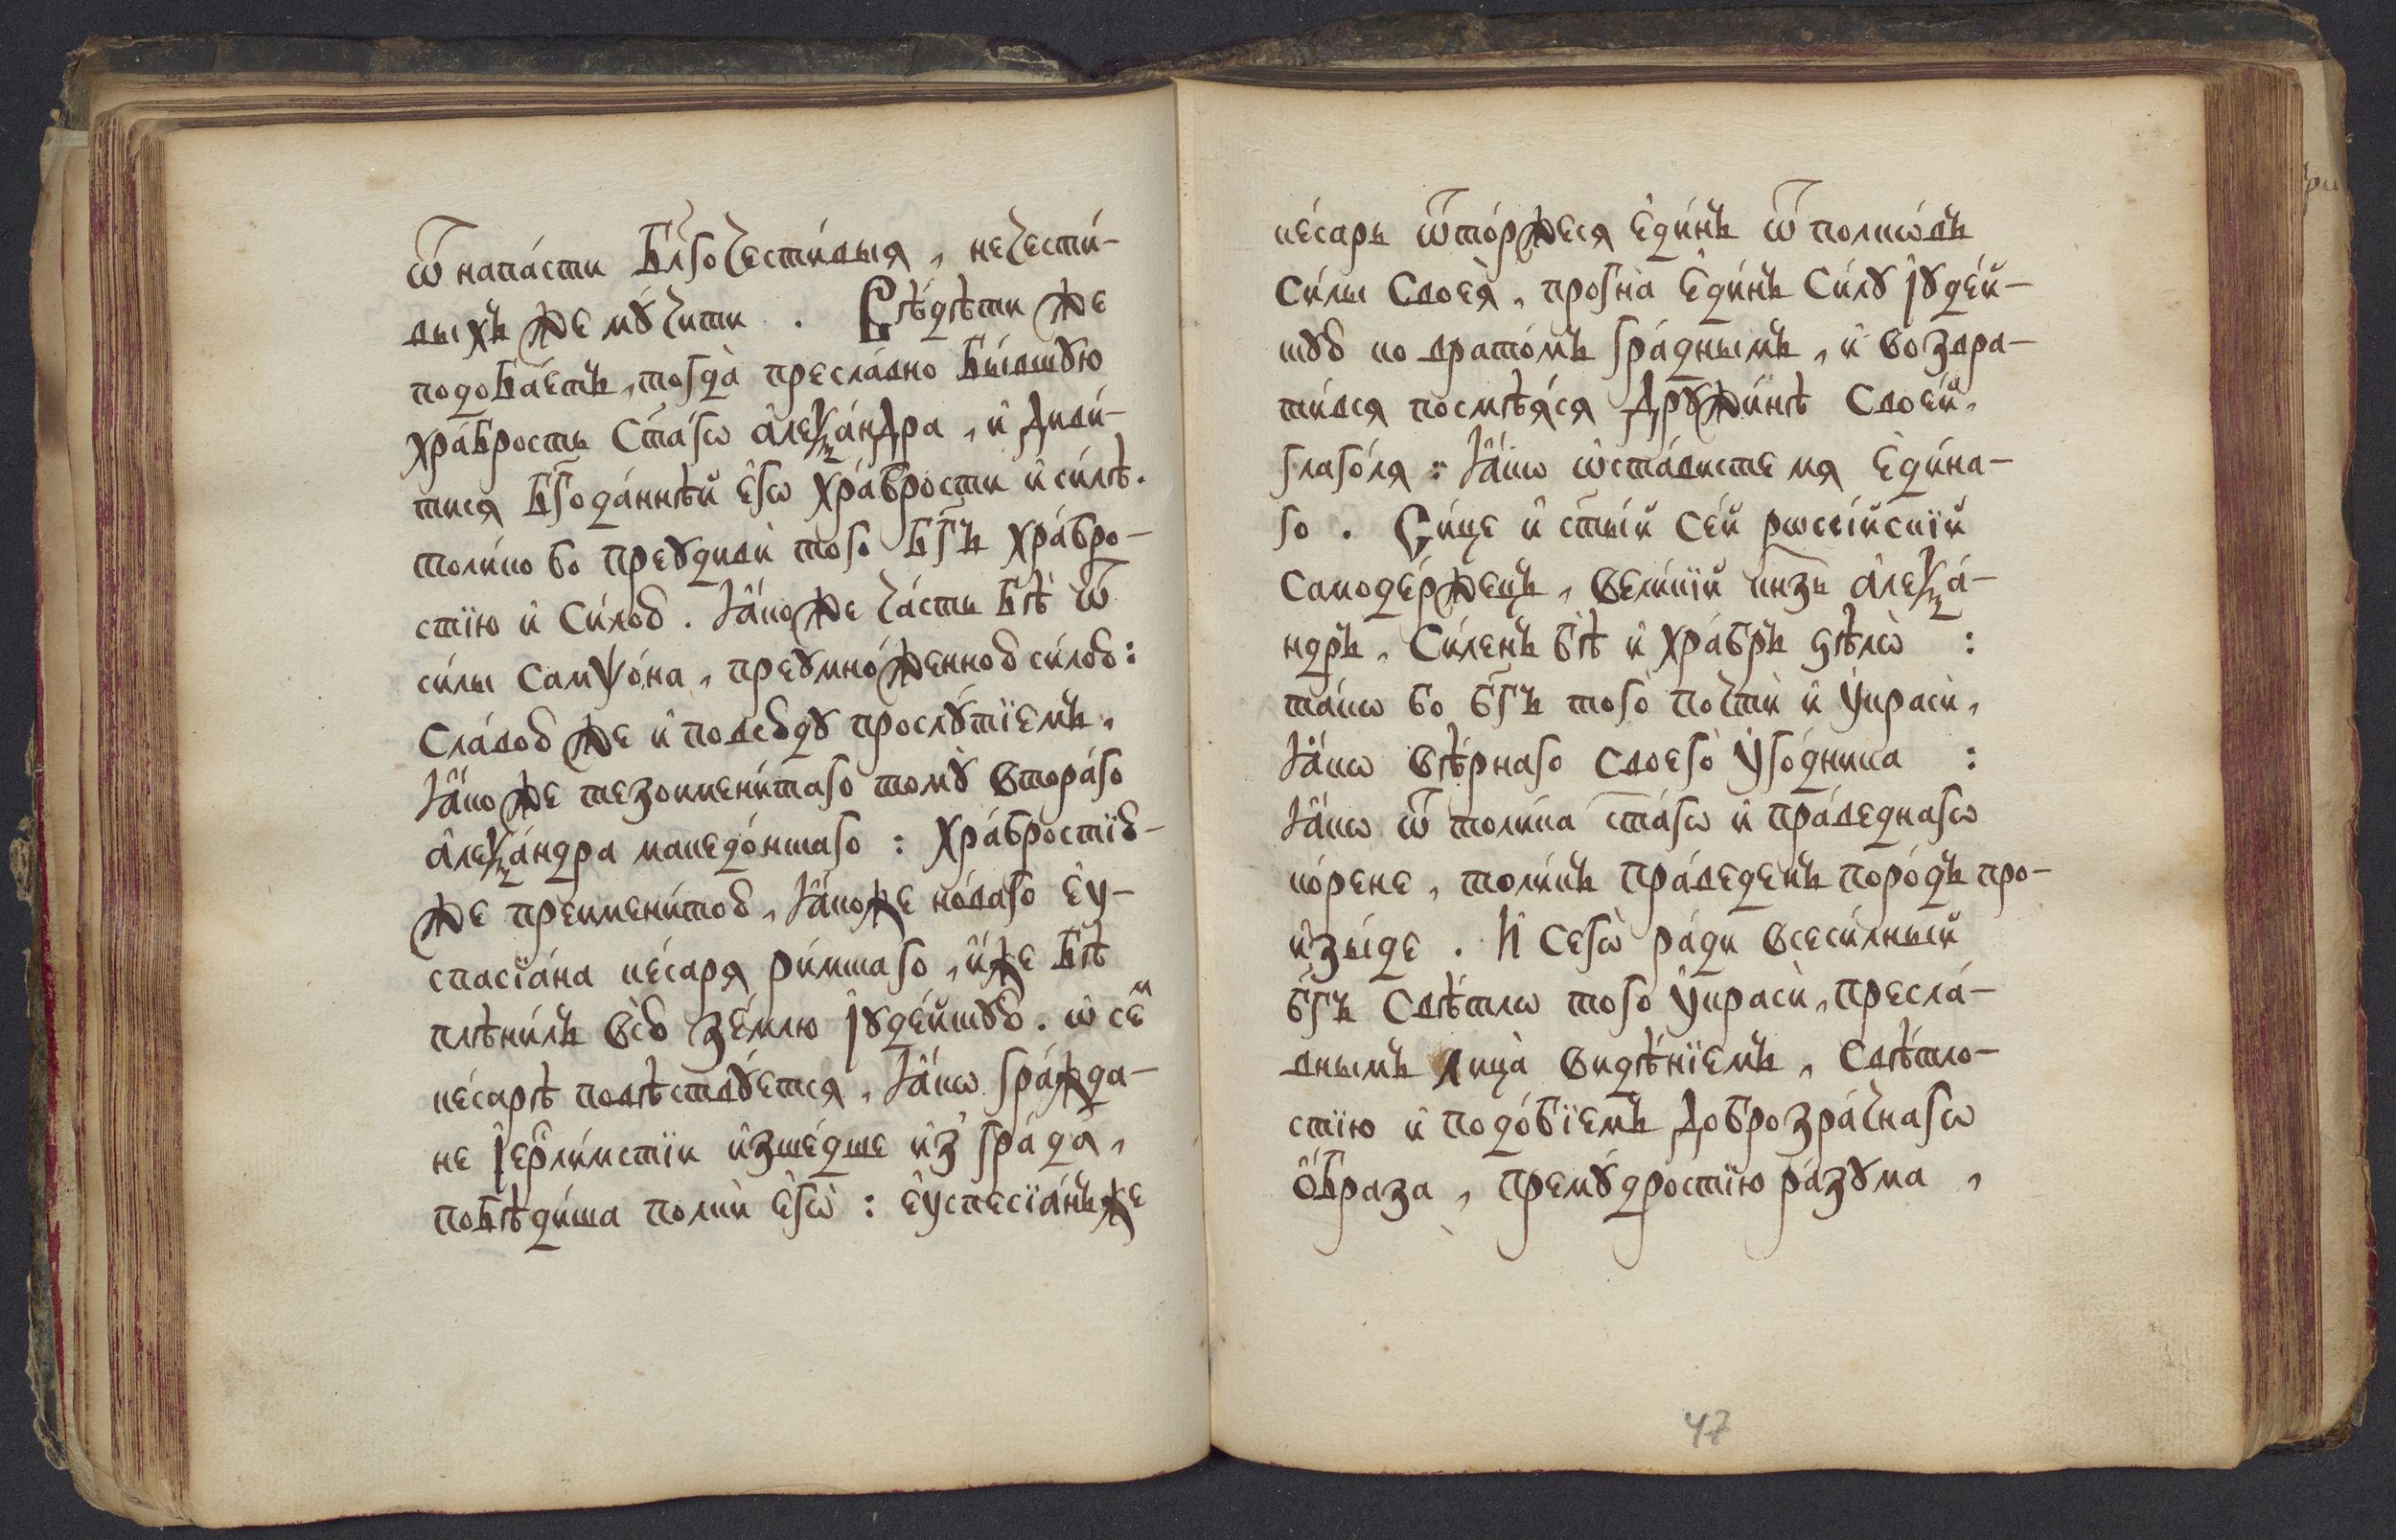 ѿ напа́сти бл҃гочести́выя , нечести́-
выхъ же мꙋ́чити . Вѣ́дѣти же
подоба́етъ , тогда̀ пресла́вно бы́вшꙋю
хра́брость ст҃а́гѡ а҆леѯа́ндра , и҆ диви́-
тися бг҃ода́ннѣй є҆гѡ̀ хра́брости и҆ си́лѣ .
толи́ко бо преꙋдивѝ того̀ бг҃ъ хра́бро-
стїю и҆ си́лою . ꙗ҆́коже ча́сть бѣ̀ ѿ
си́лы самѱо́на , преꙋмно́женною си́лою :
сла́вою же и҆ повсю́дꙋ прослꙋ́тїемъ ,
ꙗ҆́коже тезоимени́таго томꙋ̀ втора́го
а҆леѯа́ндра македо́нскаго : хра́бростїю-
же преимени́тою , ꙗ҆́коже но́ваго є҆ѵ-
спасїа́на ке́саря ри́мскаго , и҆́же бѣ̀
плѣни́лъ всю̀ зе́млю і҆ꙋде́йскꙋю . ѡ҆ се́м
ке́сарѣ повѣ́ствꙋется , ꙗ҆́кѡ гра́жда-
не і҆ер҇ли́мстїи и҆зше́дше и҆з̾ гра́да ,
побѣди́ша полкѝ є҆гѡ̀ : є҆ѵспесїа́нъже
ке́сарь ѿто́ржеся є҆ди́нъ ѿ полкѡ́въ
си́лы своея̀ , прогна̀ є҆ди́нъ си́лꙋ і҆ꙋде́й-
скꙋю ко врато́мъ гра́днымъ , и҆ возвра-
ти́вся посмѣя́ся дрꙋжи́нѣ свое́й ,
глаго́ля : ꙗ҆́кѡ ѡ҆ста́висте мя є҆ди́на-
го . Си́це и҆ ст҃ы́й се́й рѡссі́йскїй
самоде́ржецъ , вели́кїй кн҃зь а҆леѯа́-
ндръ , си́ленъ бѣ̀ и҆ хра́бръ ѕѣлѡ̀ :
та́кѡ бо бг҃ъ того̀ почтѝ и҆ ᲂу҆красѝ ,
ꙗ҆́кѡ вѣ́рнаго своего̀ ᲂу҆го́дника :
ꙗ҆́кѡ ѿ толи́ка ст҃а́гѡ и҆ пра́веднагѡ
ко́рене , толи́къ пра́веденъ поро́дъ про-
и҆зы́де . И҆ сегѡ̀ ра́ди всеси́лный
бг҃ъ свѣ́тлѡ того̀ ᲂу҆красѝ , пресла́-
внымъ лица̀ ви́дѣнїемъ , свѣ́тло-
стїю и҆ подо́бїемъ доброзра́чнагѡ
ѻ҆́браза , премꙋ́дростїю ра́зꙋма ,
47